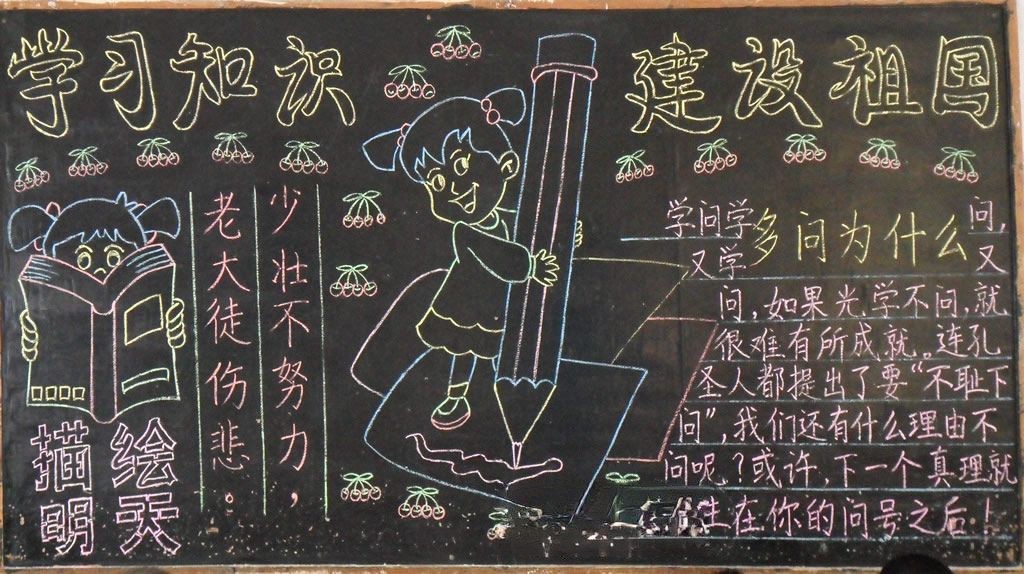 学习知识 建设祖国
少壮不努力，
老大徒伤悲。
描绘
明天
多问为什么
学问学问，
又学又
问，如果光学不问，就
很难有所成就。连孔
圣人都提出了要“不耻下
问”，我们还有什么理由不
问呢？或许，下一个真理就
生在你的问号之后！